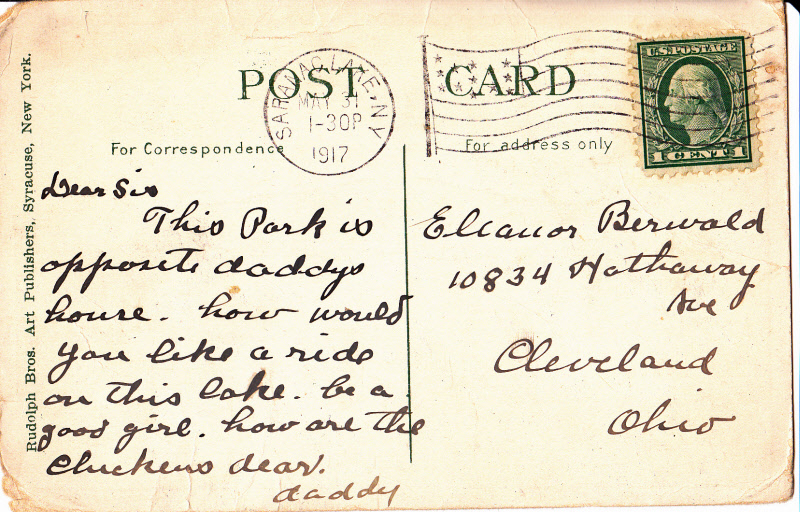 POST CARD
SARANAC LAKE, N.Y.
MAY 31
1-30P
1917
U.S. POSTAGE
1 CENT 1
For Correspondence
For address only
Rudolph Bros. Art Publishers, Syracuse, New York.
Dear Sis
This Park is
opposite daddys
house. how would
you like a ride
on this lake. be a
good girl. how are the
chickens dear.
daddy
Eleanor Berwald
10834 Hathaway
Ave
Cleveland
Ohio